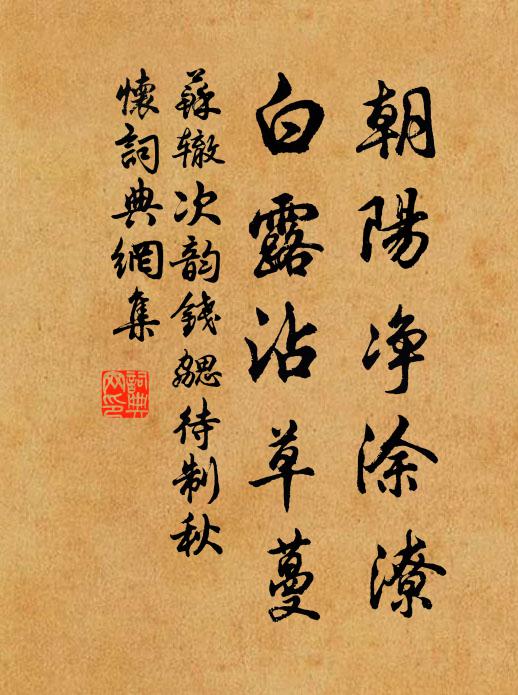 朝陽净涂潦
白露沾草蔓
蘇辙次韵錢勰待制秋
懷詞典網集
詞典網印